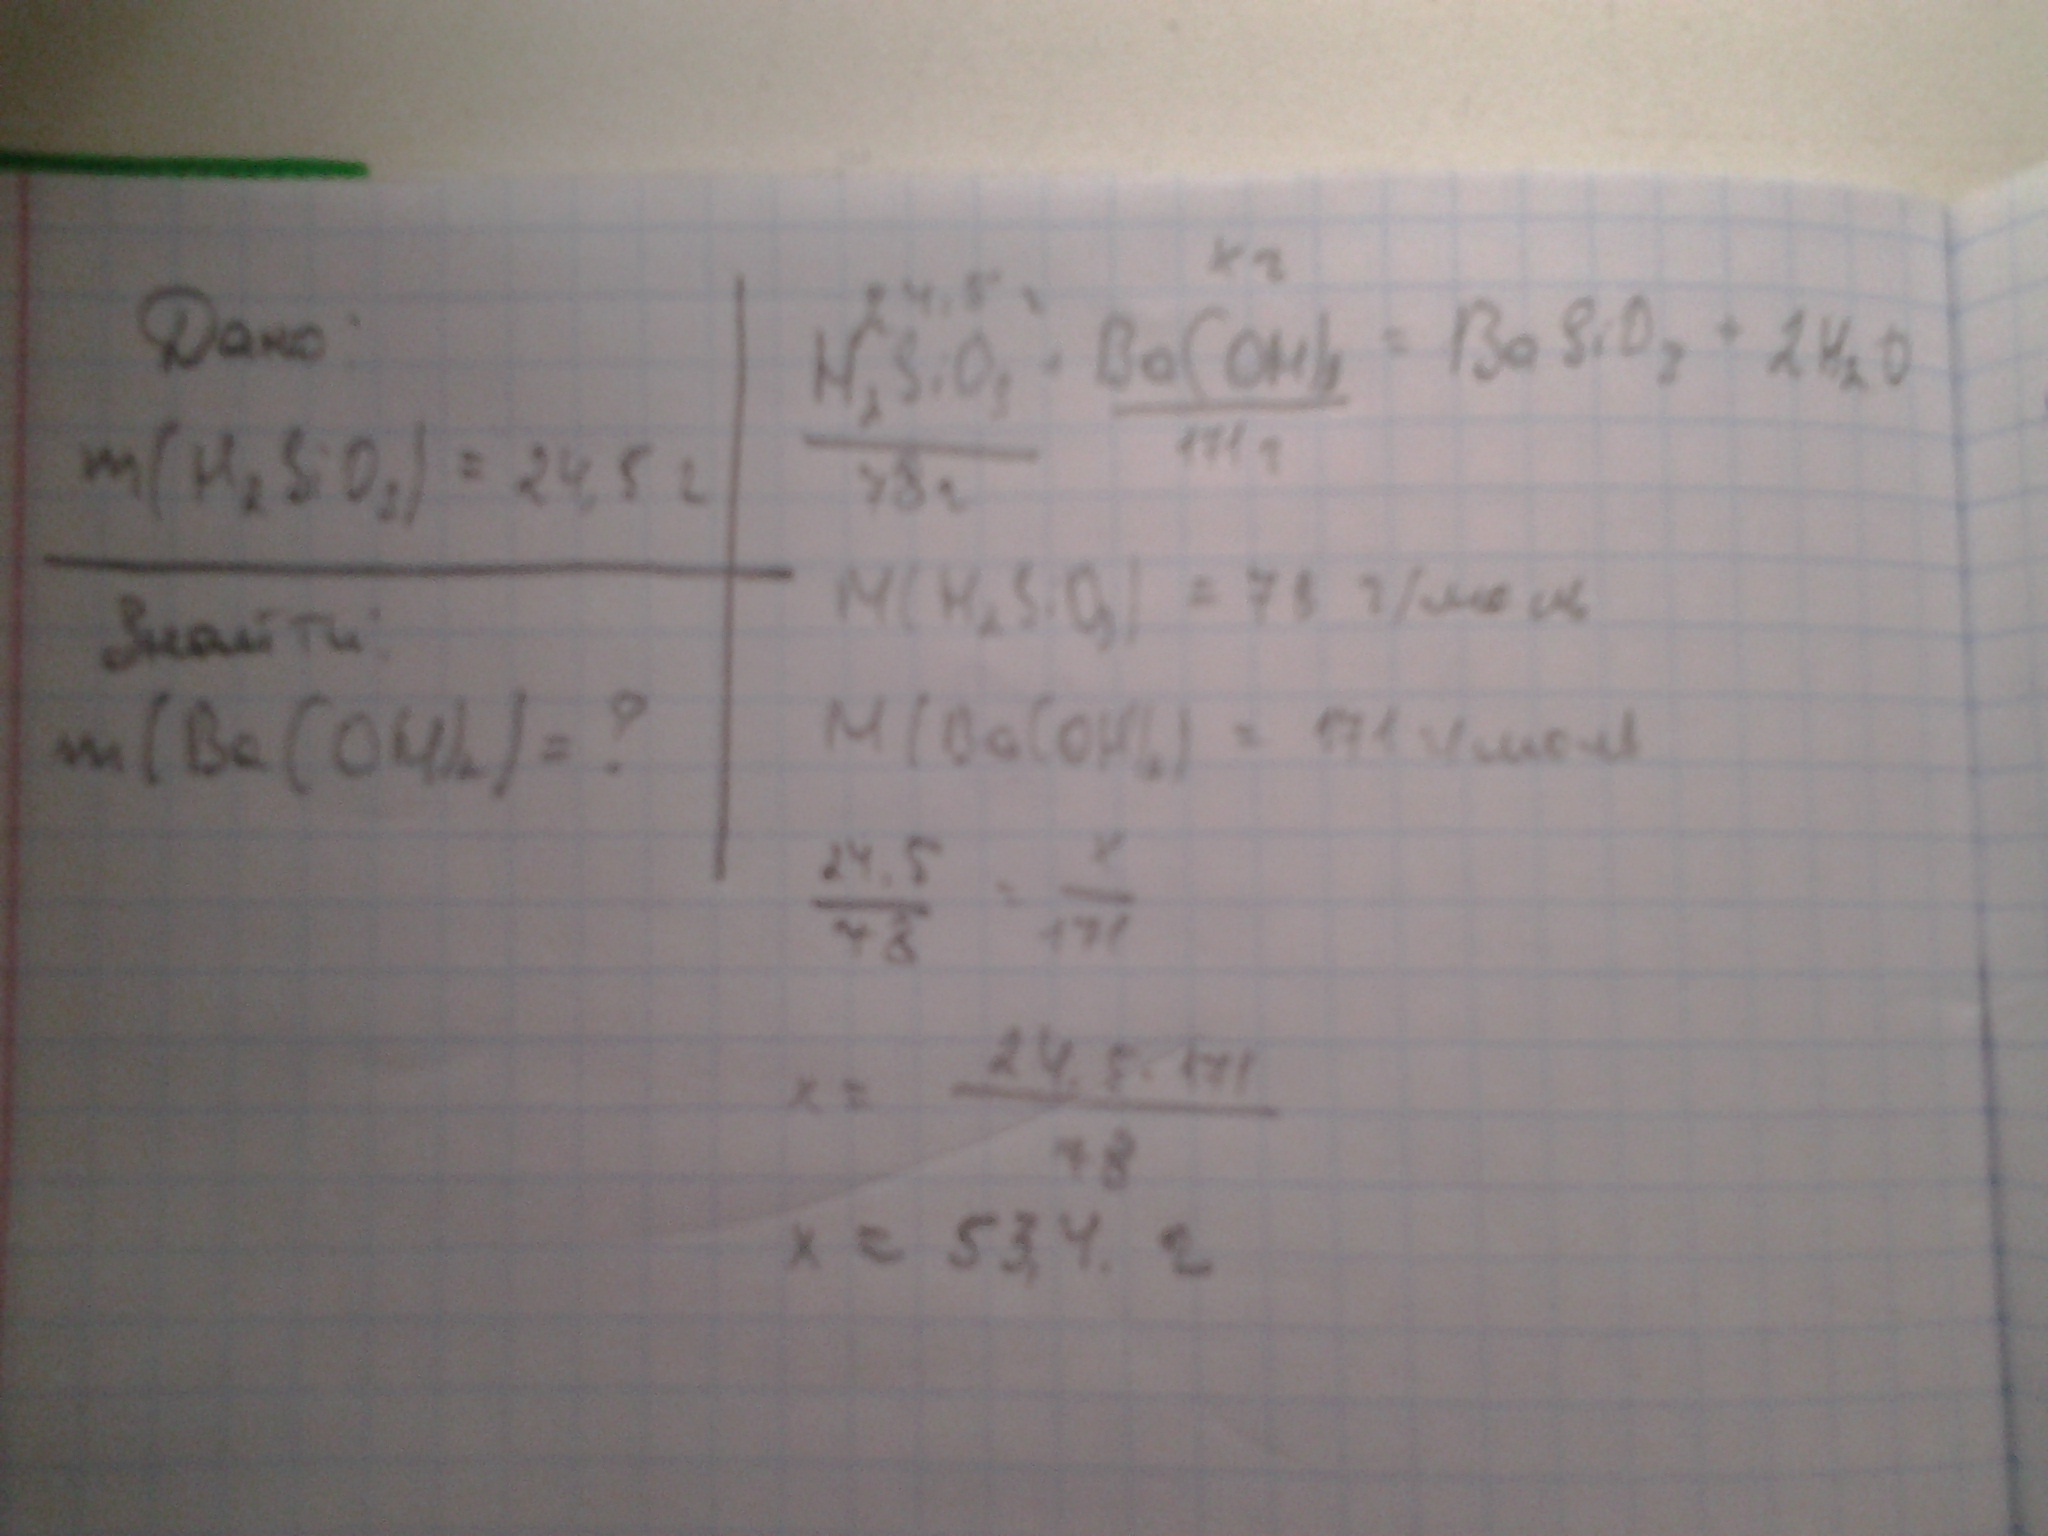 Дано:
m(H₂SiO₃) = 24,5 г
Знайти:
m(Ba(OH)₂) = ?
24,5 г x г
H₂SiO₃ + Ba(OH)₂ = BaSiO₃ + 2H₂O
78 г 171 г
M(H₂SiO₃) = 78 г/моль
M(Ba(OH)₂) = 171 г/моль
24,5/78 = x/171
x = 24,5·171/78
x = 53,4. г